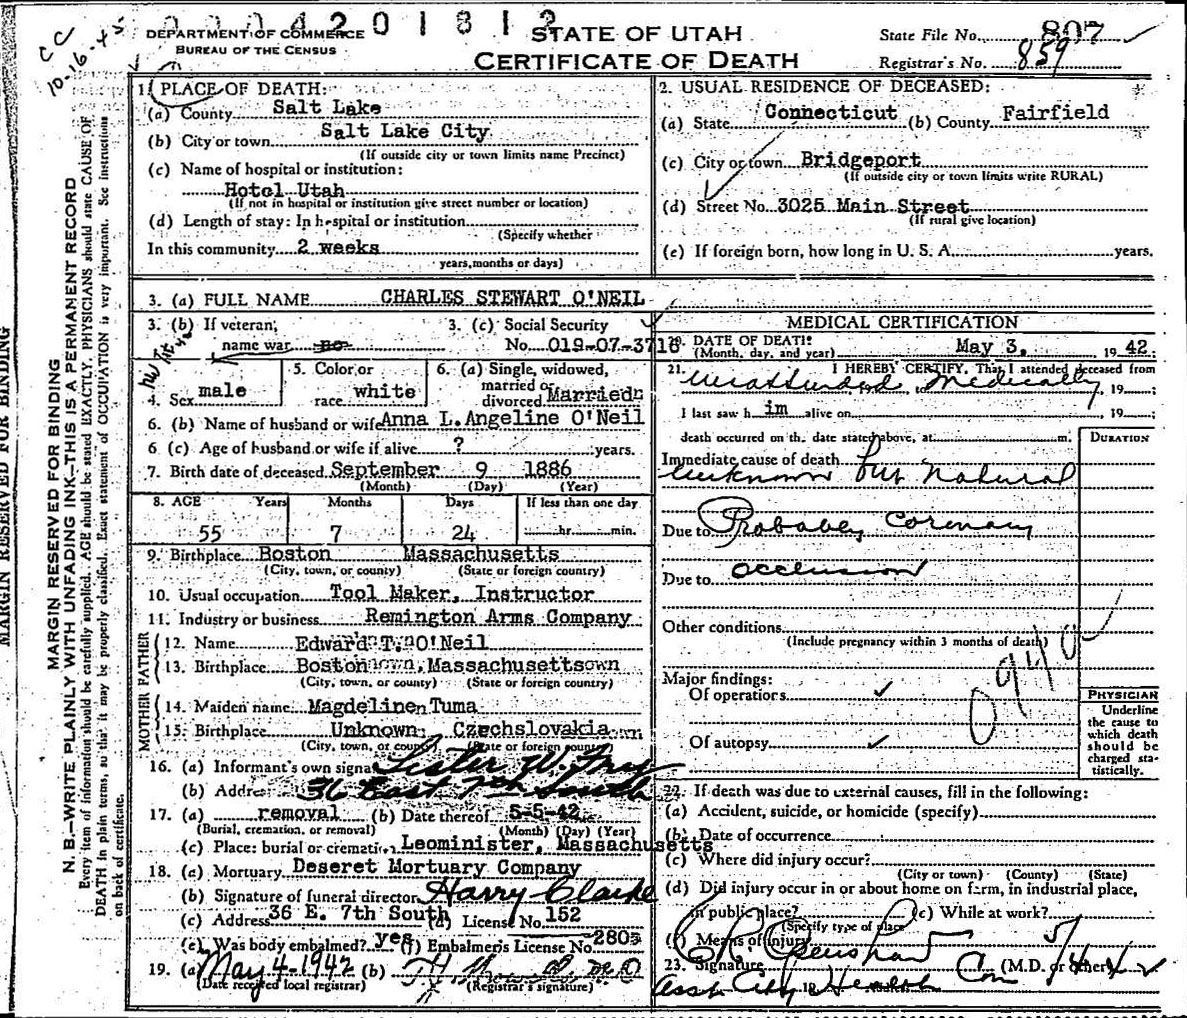 0004201812
CC
10-16-45
DEPARTMENT OF COMMERCE
BUREAU OF THE CENSUS
STATE OF UTAH
CERTIFICATE OF DEATH
State File No. 807
Registrar's No. 859
MARGIN RESERVED FOR BINDING
MARGIN RESERVED FOR BINDING
N. B.—WRITE PLAINLY WITH UNFADING INK—THIS IS A PERMANENT RECORD
Every item of information should be carefully supplied. AGE should be stated EXACTLY. PHYSICIANS should state CAUSE OF
DEATH in plain terms, so that it may be properly classified. Exact statement of OCCUPATION is very important. See Instructions
on back of certificate.
1. PLACE OF DEATH:
(a) County Salt Lake
(b) City or town Salt Lake City
(If outside city or town limits name Precinct)
(c) Name of hospital or institution:
Hotel Utah
(If not in hospital or institution give street number or location)
(d) Length of stay: In hospital or institution
(Specify whether
In this community 2 weeks
years, months or days)
2. USUAL RESIDENCE OF DECEASED:
(a) State Connecticut (b) County Fairfield
(c) City or town Bridgeport
(If outside city or town limits write RURAL)
(d) Street No. 3025 Main Street
(If rural give location)
(e) If foreign born, how long in U. S. A. years.
3. (a) FULL NAME CHARLES STEWART O'NEIL
3. (b) If veteran, 3. (c) Social Security
name war no No. 019-07-3716
4. Sex male 5. Color or race white 6. (a) Single, widowed, married or divorced Married
6. (b) Name of husband or wife Anna L. Angeline O'Neil
6. (c) Age of husband or wife if alive ? years.
7. Birth date of deceased September 9 1886
(Month) (Day) (Year)
8. AGE Years Months Days If less than one day
55 7 24 hr. min.
9. Birthplace Boston Massachusetts
(City, town, or county) (State or foreign country)
10. Usual occupation Tool Maker, Instructor
11. Industry or business Remington Arms Company
FATHER
12. Name Edward T. O'Neil
13. Birthplace Boston, Massachusetts
(City, town, or county) (State or foreign country)
MOTHER
14. Maiden name Magdeline Tuma
15. Birthplace Unknown Czechslovakia
(City, town, or county) (State or foreign country)
16. (a) Informant's own signa Lester W. Fry
(b) Address 36 East 7th South
17. (a) removal (b) Date thereof 5-5-42
(Burial, cremation, or removal) (Month) (Day) (Year)
(c) Place: burial or cremation Leominister, Massachusetts
18. (a) Mortuary Deseret Mortuary Company
(b) Signature of funeral director Harry Clarke
(c) Address 36 E. 7th South (d) License No. 152
(e) Was body embalmed? yes (f) Embalmer's License No. 2803
19. (a) May 4-1942 (b)
(Date received local registrar) (Registrar's signature)
MEDICAL CERTIFICATION
20. DATE OF DEATH:
(Month, day, and year) May 3, 1942
21. I HEREBY CERTIFY, That I attended deceased from
Unattended to Medically, 19
I last saw h im alive on , 19 ;
death occurred on the date stated above, at m.
DURATION
Immediate cause of death
unknown but natural
Due to Probably coronary
Due to occlusion
Other conditions
(Include pregnancy within 3 months of death)
0940
Major findings:
Of operations
Of autopsy
PHYSICIAN
Underline
the cause to
which death
should be
charged sta-
tistically.
22. If death was due to external causes, fill in the following:
(a) Accident, suicide, or homicide (specify)
(b) Date of occurrence
(c) Where did injury occur?
(City or town) (County) (State)
(d) Did injury occur in or about home on farm, in industrial place,
in public place? (e) While at work?
(Specify type of place)
(f) Means of injury
23. Signature (M.D. or other)
Asst City Health Com 5/4/42